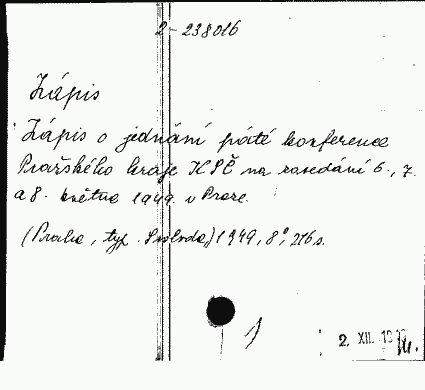 2-238016
Zápis
Zápis o jednání páté konference
Pražského kraje KSČ na zasedání 6., 7.
a 8. května 1949. v Praze.
(Praha, typ. Svoboda) 1949, 8°, 216 s.
1
2. XII. 19